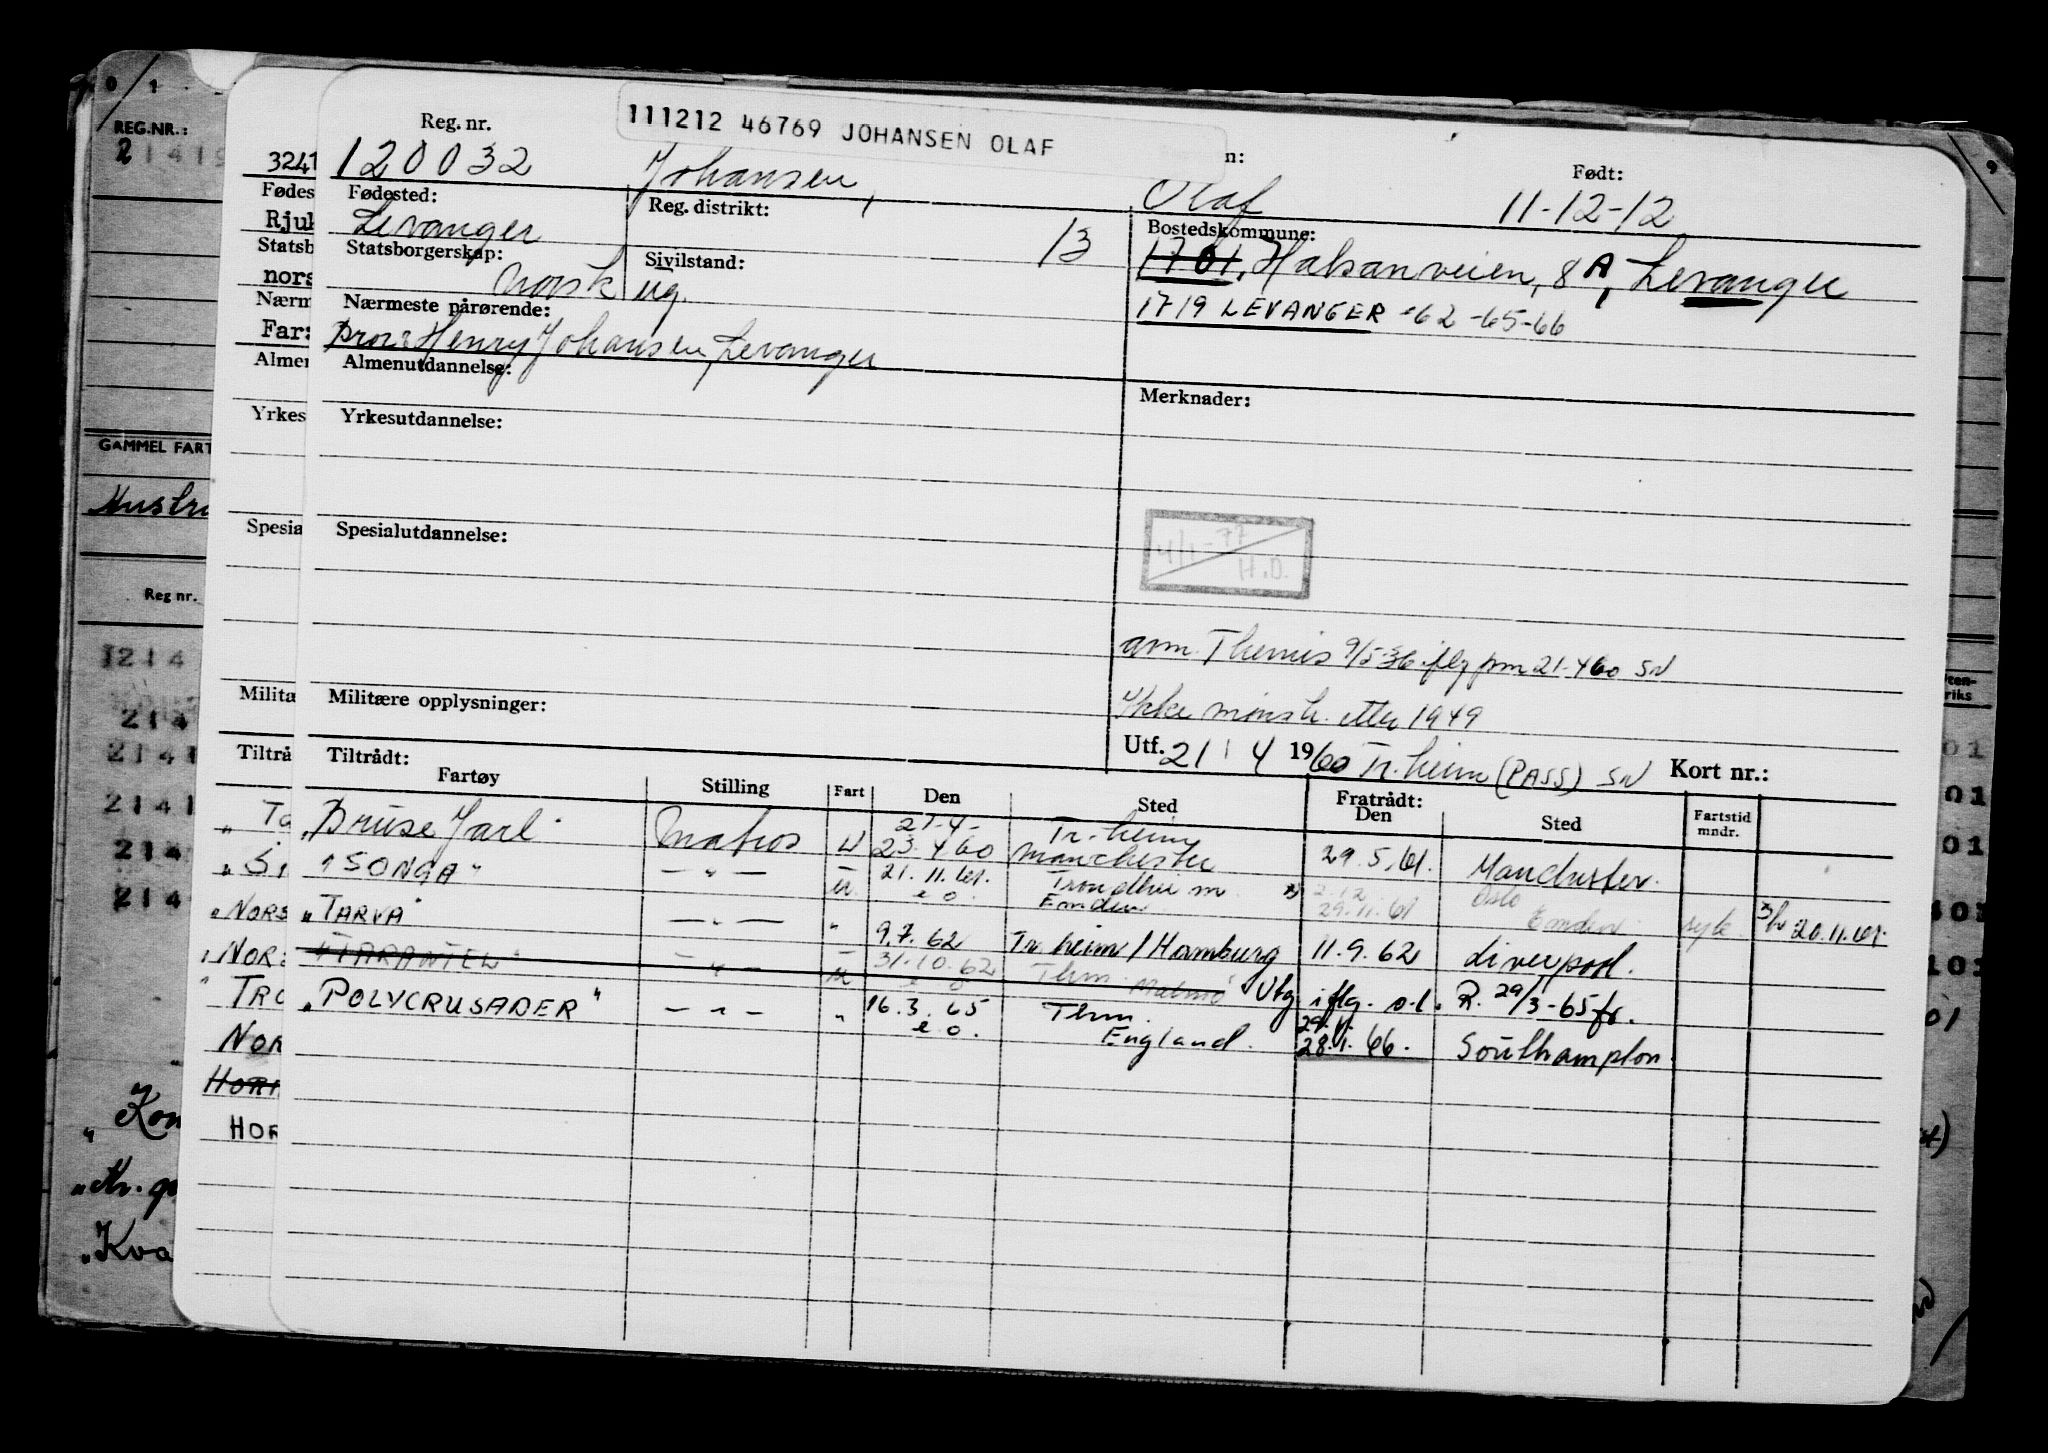 111212 46769 JOHANSEN OLAF
Reg. nr.
n:
Født:
120032
Johansen,
Olaf
11-12-12
Fødested:
Reg. distrikt:
Bostedskommune:
Levanger
13
1701, Halsanveien, 8A, Levanger
Statsborgerskap:
Sivilstand:
norsk
ug.
1719 LEVANGER -62-65-66
Nærmeste pårørende:
Bror: Henry Johansen, Levanger
Almenutdannelse:
Merknader:
Yrkesutdannelse:
Spesialutdannelse:
4/1-77
H.D.
anm. Themis 9/5-36 iflg pm 21-4-60 SN
Militære opplysninger:
Ikke mønstr. etter 1949
Utf. 21/4 1960 Tr.heim (PASS) SN
Kort nr.:
Tiltrådt:
Fartøy
Stilling
Fart
Den
Sted
Fratrådt:
Den
Sted
Fartstid
mndr.
"Bruse Jarl"
Matros
U
21-4-
23.4.60
Tr.heim
Manchester
29.5.61.
Manchester.
"SONGA"
— " —
U.
21.11.61.
e.o.
Trondheim
Emden
2.12
29.11.61
Oslo
Emden
syk.
20.11.61.
"TARVA"
— " —
"
9.7.62
Tr.heim/Hamburg
11.9.62
Liverpool.
"TARANTEL"
— " —
U
31-10.62
e.o.
Thm.
Malmö
Utg iflg. s.l. R. 29/3-65 fr.
"POLYCRUSADER"
— " —
"
16.3.65
e.o.
Thm.
England.
29.1.
28.1.66.
Southampton.
3241
Fødes
Rjuk
Statsb
nors
Nærm
Far:
Almen
Yrkes
Spesia
Militæ
Tiltrå
NORS
NOR
TRO
NOR
HOR
HOR
REG.NR.:
21419
GAMMEL FART
Austra
Reg nr.
1214
214
2141
2141
214
214
"Kon
"Kva
riks
01
01
01
101
01